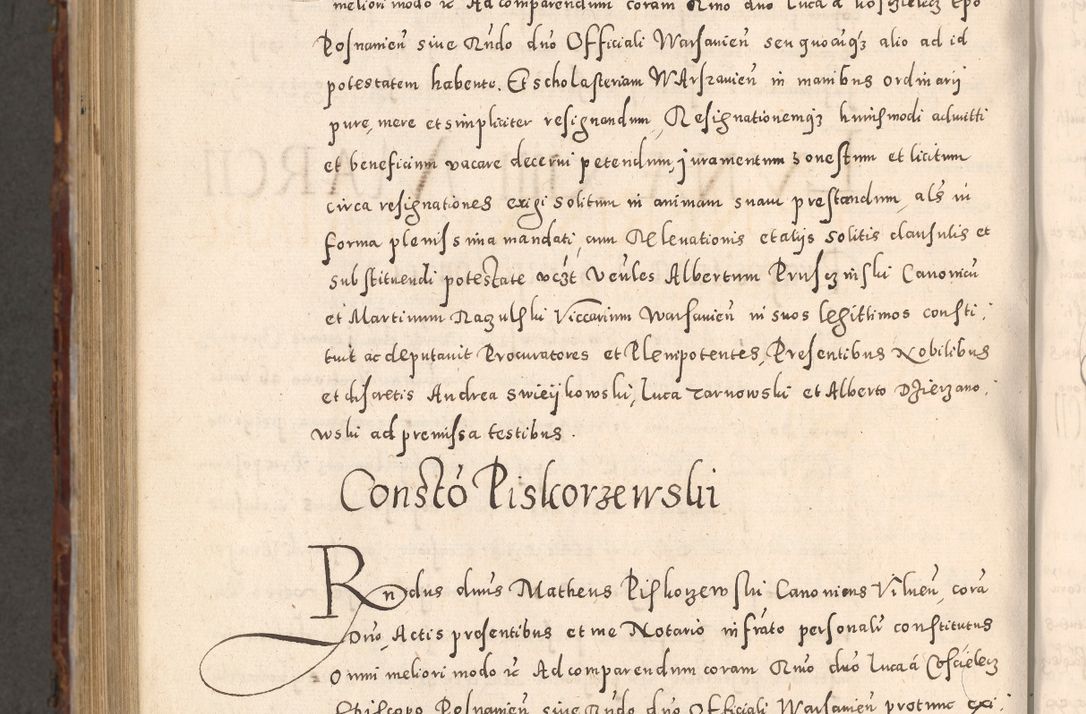 meliori modo rc Ad comparendum coram Rmo dno Luca a Kosczielecz Epo
Posnanien̄ siue Rn̄do dn̄o Officiali Warsauien̄ seu quocūq3 alio ad id
potestatem habente. Et scholasteriam WArszauien̄ in manibus ordinarij
pure, mere et simpliciter resignandum, Resignationemq3 huiusmodi admitti
et beneficium vacare decerni petendum, juramentum honestum et licitum
circa resignationes exigi solitum in animam suam prestandum, als̄ in
forma plenissima mandati, cum Releuationis et alijs solitis clausulis et
substituendi potestate vcz̄t Ven̄les Albertum Prusczinski Canonicū
et Martinum Ragulski Viccarium Warsauien̄ in suos legittimos consti:
tuit ac deputauit Procuratores et Plenipotentes, Presentibus Nobilibus
et discretis Andrea Swieijkowski, Luca Tarnowski et Alberto Dzierzano:
wski ad premissa testibus.
Constō Piskorzewski
Rndus dnūs Matheus Piskorzewski Canonicus Vilnen̄, corā
Dn̄o, Actis presentibus et me Notario infrāto personalr̄ constitutus
Omni meliori modo rc Ad comparendum coram Rmo dn̄o Luca á Coscielecz
Episcopo Posnanien̄ siue Rn̄do dn̄o Officiali Warsauien̄ protunc exi: